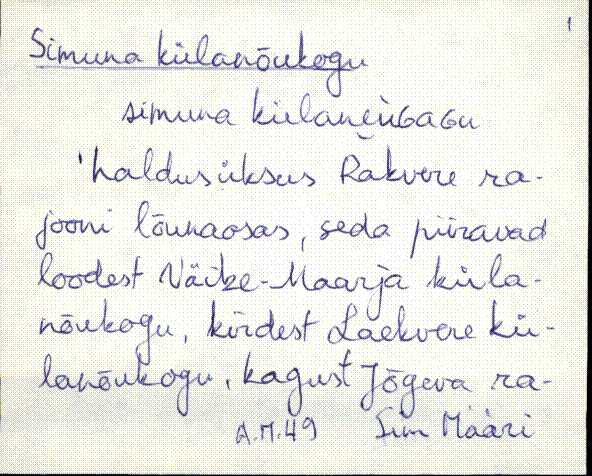 1
Simuna külanõukogu
simuna külanèùɢaɢu
'haldusüksus Rakvere ra-
jooni lõunaosas, seda piiravad
loodest Väike-Maarja küla-
nõukogu, kirdest Laekvere kü-
lanõukogu, kagust Jõgeva ra-
A.M.49 Sim Määri